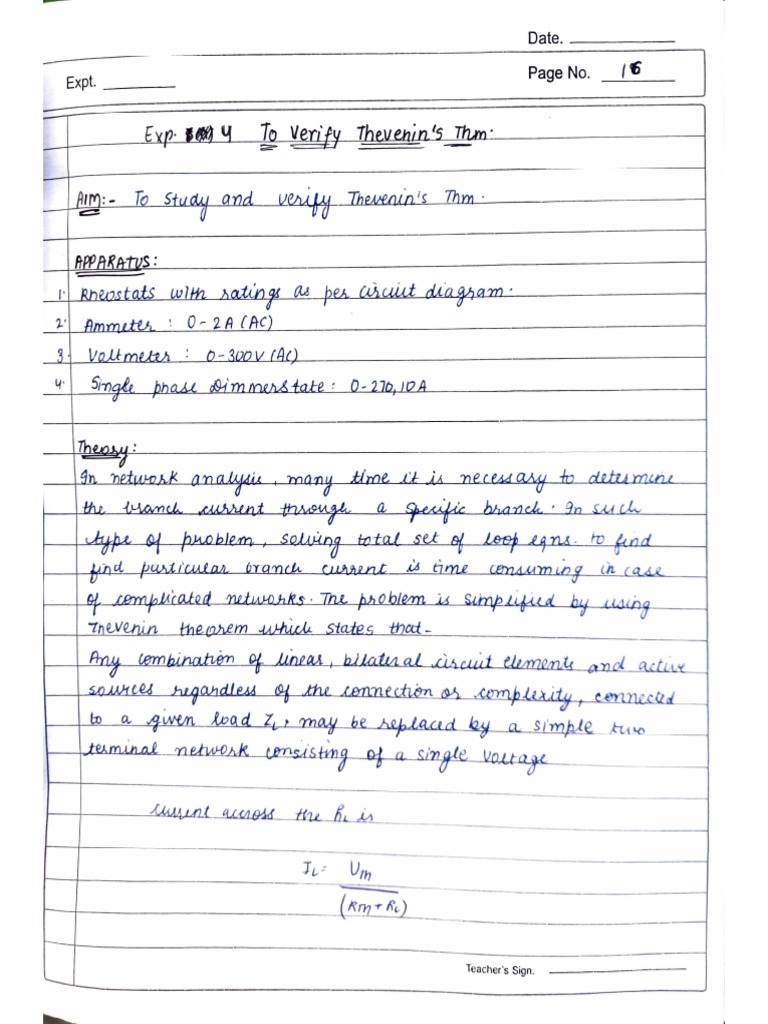 Date.
Expt.
Page No. 16
Exp. 4 To Verify Thevenin's Thm.
AIM:- To study and verify Thevenin's Thm.
APPARATUS:
1. Rheostats with ratings as per circuit diagram.
2. Ammeter : 0-2A (AC)
3. Voltmeter : 0-300V (AC)
4. Single phase Dimmerstate : 0-270, 10A
Theory:
In network analysis, many time it is necessary to determine
the branch current through a specific branch. In such
type of problem, solving total set of loop eqns. to find
find particular branch current is time consuming in case
of complicated networks. The problem is simplified by using
Thevenin theorem which states that-
Any combination of linear, bilateral circuit elements and active
sources regardless of the connection or complexity, connected
to a given load ZL, may be replaced by a simple two
terminal network consisting of a single voltage
current across the RL is
IL = Vm
(Rm + RL)
Teacher's Sign.